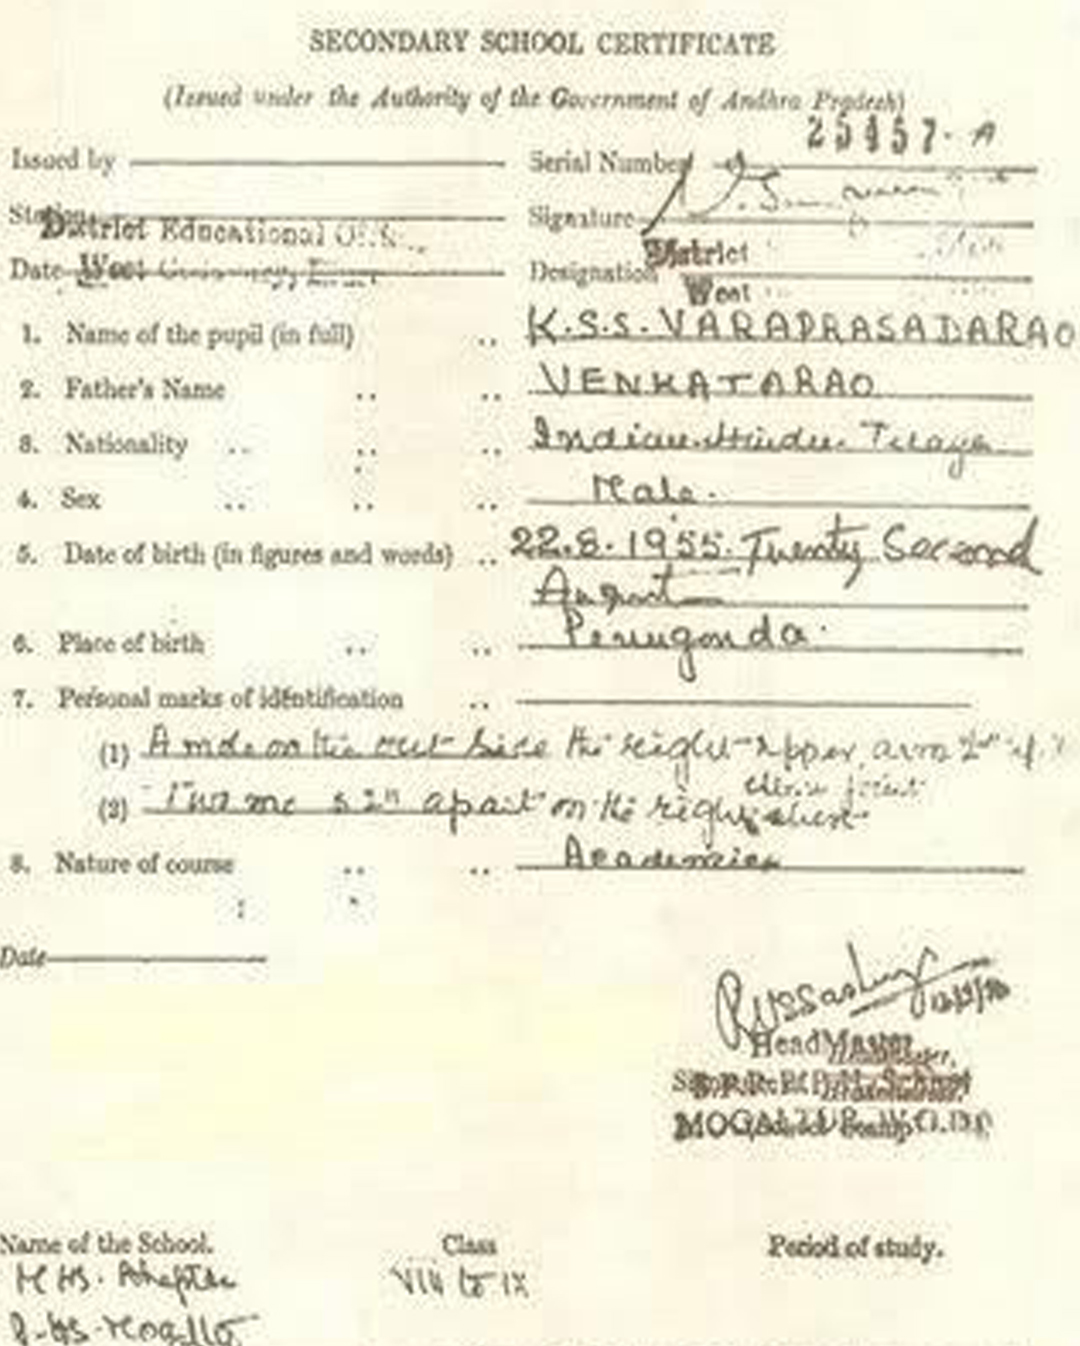 SECONDARY SCHOOL CERTIFICATE
(Issued under the Authority of the Government of Andhra Pradesh)
25457-A
Issued by
Serial Number
Station
Signature
District Educational
Date West
Designation District
West
1. Name of the pupil (in full) .. K.S.S. VARAPRASADARAO
2. Father's Name .. .. VENKATARAO
3. Nationality .. .. .. Indian Hindu Telaga
4. Sex .. .. .. Male.
5. Date of birth (in figures and words) .. 22.8.1955. Twenty Second
August
6. Place of birth .. .. Penugonda.
7. Personal marks of identification ..
(1) A mole on the out side the right upper arm
(2) apart on the right
8. Nature of course .. ..
Date
HeadMaster
Name of the School.
Class
Period of study.
VIII to IX